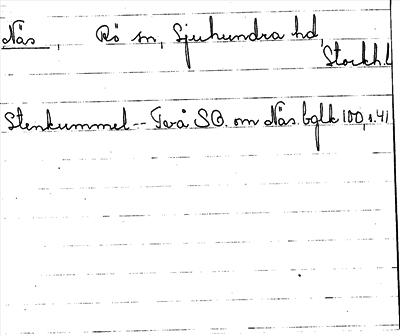 Näs, Rö sn, Sjuhundra hd,
Stockh.l
Stenkummel -- Två SO. om Näs. bglk 100, s. 41